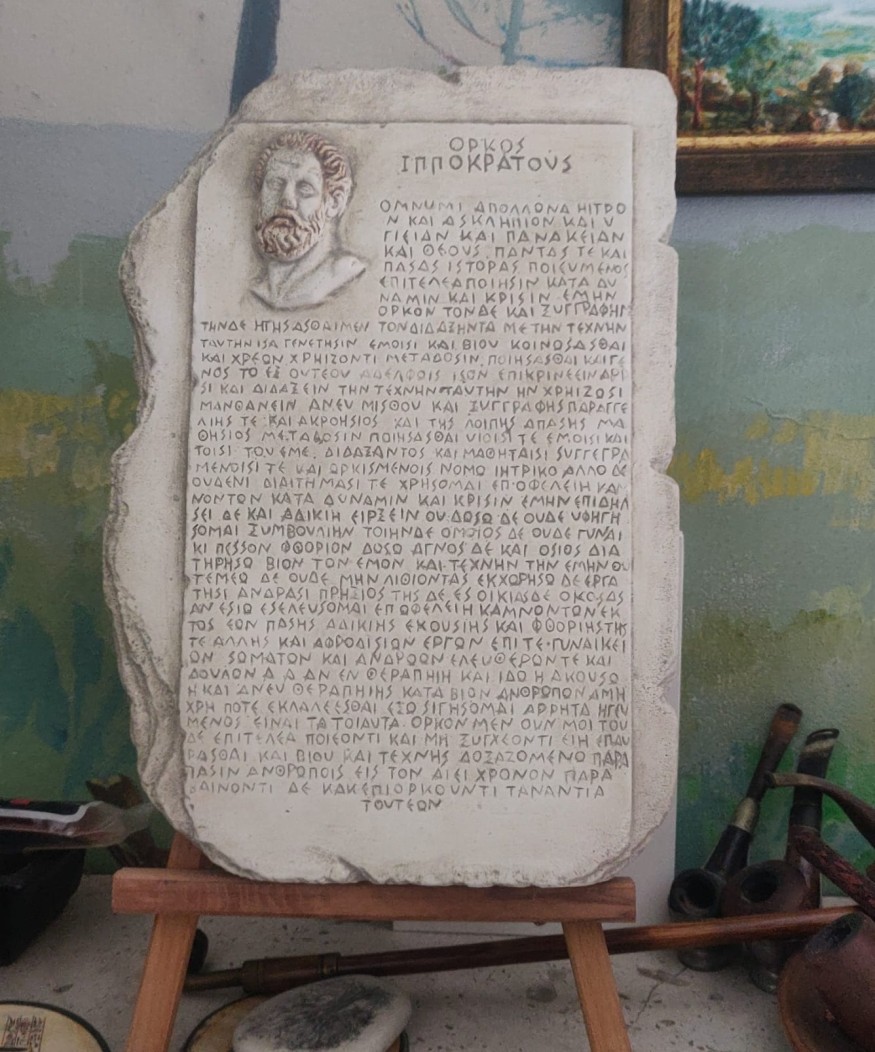 ΟΡΚΟΣ
ΙΠΠΟΚΡΑΤΟΥΣ
ΟΜΝUΜΙ ΑΠΟΛΛΩΝΑ ΗΙΤΡΟ
Ν ΚΑΙ ΑΣΚΛΗΠΙΟΝ ΚΑΙ Υ
ΓΙΕΙΑΝ ΚΑΙ ΠΑΝΑΚΕΙΑΝ
ΚΑΙ ΘΕΟΥΣ ΠΑΝΤΑΣ ΤΕ ΚΑΙ
ΠΑΣΑΣ ΙΣΤΟΡΑΣ ΠΟΙΕΥΜΕΝΟΣ
ΕΠΙΤΕΛΕΑ ΠΟΙΗΣΙΝ ΚΑΤΑ ΔΥ
ΝΑΜΙΝ ΚΑΙ ΚΡΙΣΙΝ ΕΜΗΝ
ΟΡΚΟΝ ΤΟΝΔΕ ΚΑΙ ΞΥΓΓΡΑΦΗΝ
ΤΗΝΔΕ ΗΓΗΣΑΣΘΑΙ ΜΕΝ ΤΟΝ ΔΙΔΑΞΗΝΤΑ ΜΕ ΤΗΝ ΤΕΧΝΗΝ
ΤΑΥΤΗΝ ΙΣΑ ΓΕΝΕΤΗΣΙΝ ΕΜΟΙΣΙ ΚΑΙ ΒΙΟΥ ΚΟΙΝΩΣΑΣΘΑΙ
ΚΑΙ ΧΡΕΩΝ ΧΡΗΙΖΟΝΤΙ ΜΕΤΑΔΟΣΙΝ ΠΟΙΗΣΑΣΘΑΙ ΚΑΙ ΓΕ
ΝΟΣ ΤΟ ΕΞ ΟΥΤΕΟΥ ΑΔΕΛΦΟΙΣ ΙΣΟΝ ΕΠΙΚΡΙΝΕΕΙΝ ΑΡΡ
ΣΙ ΚΑΙ ΔΙΔΑΞΕΙΝ ΤΗΝ ΤΕΧΝΗΝ ΤΑΥΤΗΝ ΗΝ ΧΡΗΙΖΩΣΙ
ΜΑΝΘΑΝΕΙΝ ΑΝΕΥ ΜΙΣΘΟΥ ΚΑΙ ΞΥΓΓΡΑΦΗΣ ΠΑΡΑΓΓΕ
ΛΙΗΣ ΤΕ ΚΑΙ ΑΚΡΟΗΣΙΟΣ ΚΑΙ ΤΗΣ ΛΟΙΠΗΣ ΑΠΑΣΗΣ ΜΑ
ΘΗΣΙΟΣ ΜΕΤΑΔΟΣΙΝ ΠΟΙΗΣΑΣΘΑΙ ΥΙΟΙΣΙ ΤΕ ΕΜΟΙΣΙ ΚΑΙ
ΤΟΙΣΙ ΤΟΥ ΕΜΕ ΔΙΔΑΞΑΝΤΟΣ ΚΑΙ ΜΑΘΗΤΑΙΣΙ ΣΥΓΓΕΓΡΑ
ΜΕΝΟΙΣΙ ΤΕ ΚΑΙ ΩΡΚΙΣΜΕΝΟΙΣ ΝΟΜΩ ΙΗΤΡΙΚΩ ΑΛΛΩ ΔΕ
ΟΥΔΕΝΙ ΔΙΑΙΤΗΜΑΣΙ ΤΕ ΧΡΗΣΟΜΑΙ ΕΠ ΟΦΕΛΕΙΗ ΚΑΜ
ΝΟΝΤΩΝ ΚΑΤΑ ΔΥΝΑΜΙΝ ΚΑΙ ΚΡΙΣΙΝ ΕΜΗΝ ΕΠΙ ΔΗΛ
ΣΕΙ ΔΕ ΚΑΙ ΑΔΙΚΙΗ ΕΙΡΞΕΙΝ ΟΥ ΔΩΣΩ ΔΕ ΟΥΔΕ ΥΦΗΓΗ
ΣΟΜΑΙ ΞΥΜΒΟΥΛΙΗΝ ΤΟΙΗΝΔΕ ΟΜΟΙΟΣ ΔΕ ΟΥΔΕ ΓΥΝΑΙ
ΚΙ ΠΕΣΣΟΝ ΦΘΟΡΙΟΝ ΔΩΣΩ ΑΓΝΟΣ ΔΕ ΚΑΙ ΟΣΙΟΣ ΔΙΑ
ΤΗΡΗΣΩ ΒΙΟΝ ΤΟΝ ΕΜΟΝ ΚΑΙ ΤΕΧΝΗΝ ΤΗΝ ΕΜΗΝ ΟΥ
ΤΕΜΕΩ ΔΕ ΟΥΔΕ ΜΗΝ ΛΙΘΙΟΝΤΑΣ ΕΚΧΩΡΗΣΩ ΔΕ ΕΡΓΑ
ΤΗΣΙ ΑΝΔΡΑΣΙ ΠΡΗΞΙΟΣ ΤΗΣ ΔΕ ΕΣ ΟΙΚΙΑΣ ΔΕ ΟΚΟΣΑΣ
ΑΝ ΕΣΙΩ ΕΣΕΛΕΥΣΟΜΑΙ ΕΠ ΩΦΕΛΕΙΗ ΚΑΜΝΟΝΤΩΝ ΕΚ
ΤΟΣ ΕΩΝ ΠΑΣΗΣ ΑΔΙΚΙΗΣ ΕΚΟΥΣΙΗΣ ΚΑΙ ΦΘΟΡΙΗΣ ΤΗΣ
ΤΕ ΑΛΛΗΣ ΚΑΙ ΑΦΡΟΔΙΣΙΩΝ ΕΡΓΩΝ ΕΠΙ ΤΕ ΓΥΝΑΙΚΕΙ
ΩΝ ΣΩΜΑΤΩΝ ΚΑΙ ΑΝΔΡΩΩΝ ΕΛΕΥΘΕΡΩΝ ΤΕ ΚΑΙ
ΔΟΥΛΩΝ Α Δ ΑΝ ΕΝ ΘΕΡΑΠΗΙΗ ΚΑΙ ΙΔΩ Η ΑΚΟΥΣΩ
Η ΚΑΙ ΑΝΕΥ ΘΕΡΑΠΗΙΗΣ ΚΑΤΑ ΒΙΟΝ ΑΝΘΡΩΠΩΝ Α ΜΗ
ΧΡΗ ΠΟΤΕ ΕΚΛΑΛΕΕΣΘΑΙ ΕΞΩ ΣΙΓΗΣΟΜΑΙ ΑΡΡΗΤΑ ΗΓΕΥ
ΜΕΝΟΣ ΕΙΝΑΙ ΤΑ ΤΟΙΑΥΤΑ ΟΡΚΟΝ ΜΕΝ ΟΥΝ ΜΟΙ ΤΟΥ
ΔΕ ΕΠΙΤΕΛΕΑ ΠΟΙΕΟΝΤΙ ΚΑΙ ΜΗ ΞΥΓΧΕΟΝΤΙ ΕΙΗ ΕΠΑΥ
ΡΑΣΘΑΙ ΚΑΙ ΒΙΟΥ ΚΑΙ ΤΕΧΝΗΣ ΔΟΞΑΖΟΜΕΝΩ ΠΑΡΑ
ΠΑΣΙΝ ΑΝΘΡΩΠΟΙΣ ΕΙΣ ΤΟΝ ΑΙΕΙ ΧΡΟΝΟΝ ΠΑΡΑ
ΒΑΙΝΟΝΤΙ ΔΕ ΚΑΚ ΕΠΙΟΡΚΟΥΝΤΙ ΤΑΝΑΝΤΙΑ
ΤΟΥΤΕΩΝ